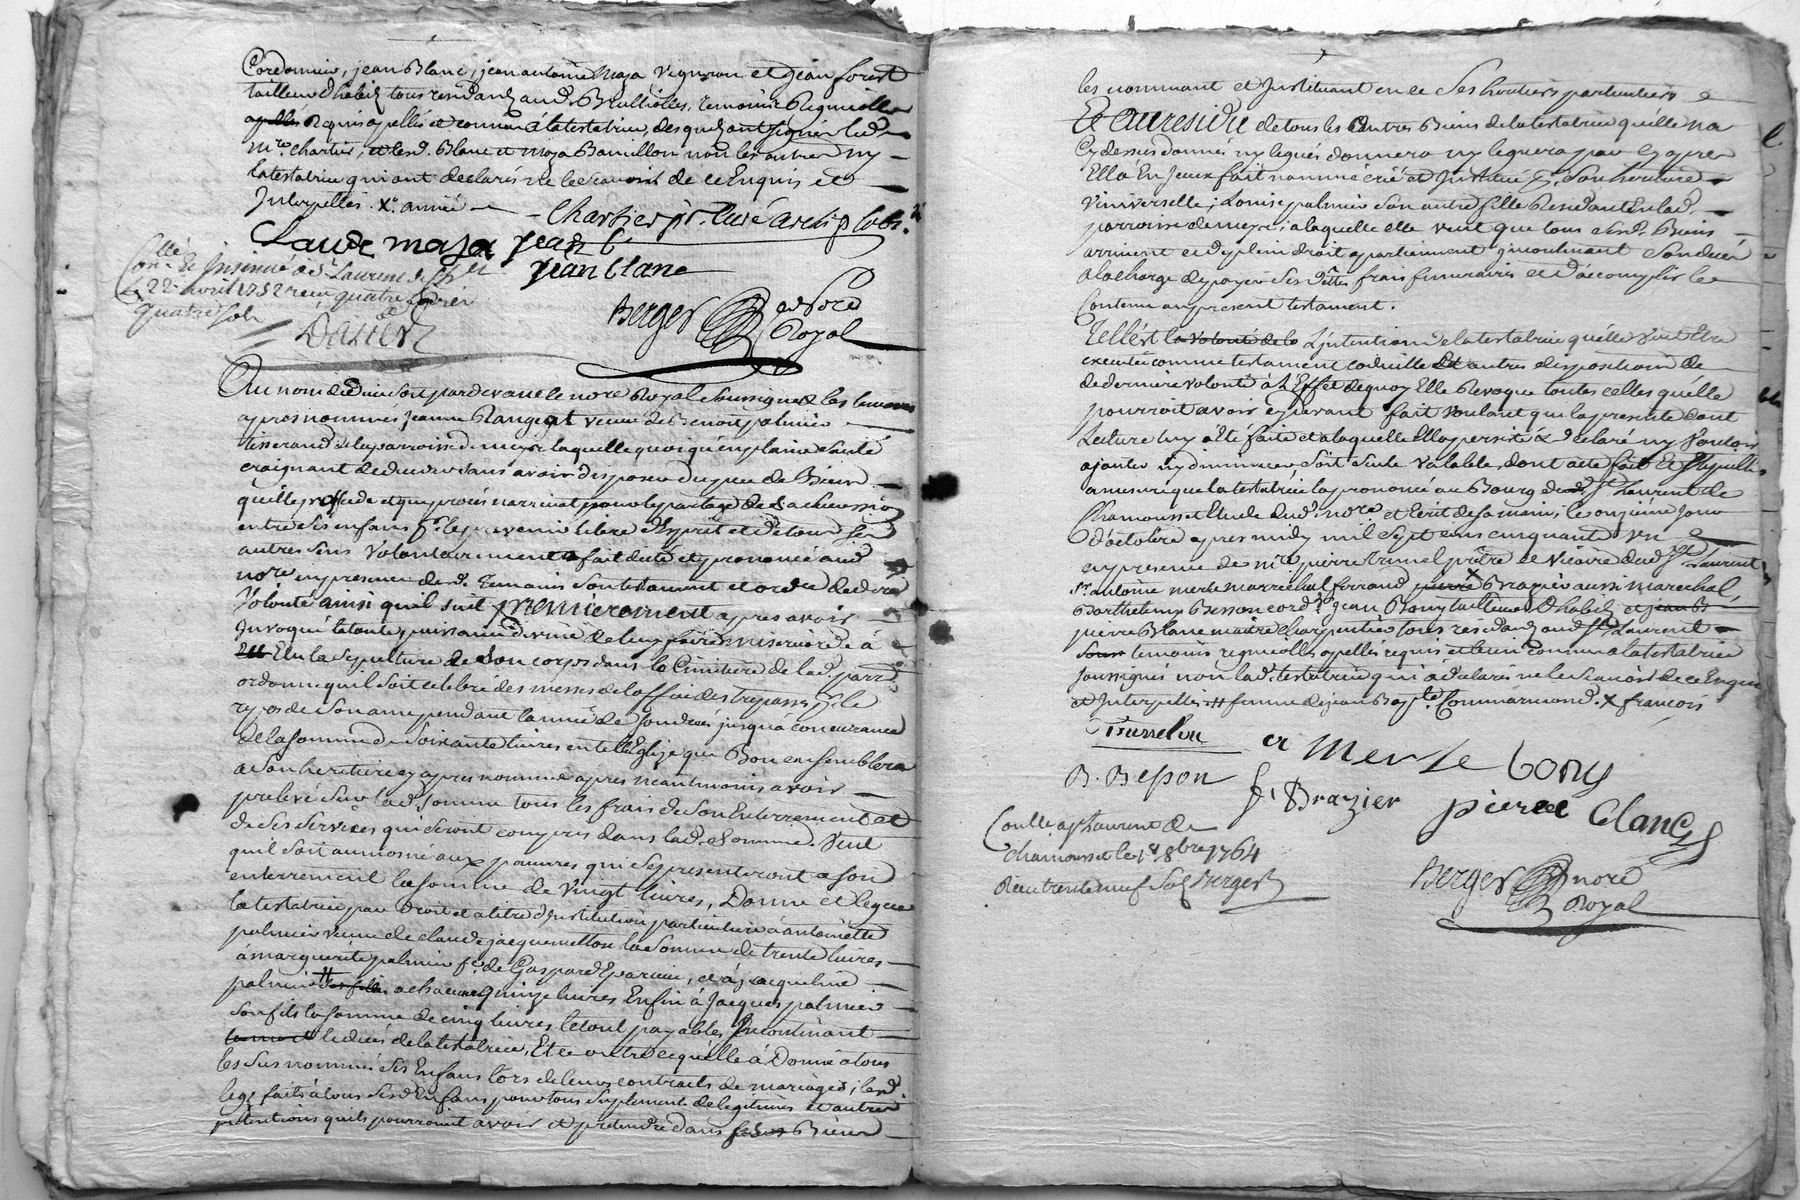 Cordonnier, jean Blanc, jean antoine Maja vigneron et jean forest
tailleur d'habitz tous residantz aud. Brullioles, temoins Regnicolles
appellés Requis appellés et connus à la testatrice, desquelz ont signé led.
mre. chartier, et lesd. Blanc et maja non les autres ny
la testatrice qui ont declarés ne le sçavoir de ce Enquis et
Interpellés.
Chartier ptre Curé
Claude maja jean
jean blanc
Collé
Con.lé & Insinué a St Laurent
le 22e avril 1752 recu quatre
quatre sols
Berger no.re
Royal
Au nom de Dieu soit pardevant le no.re Royal soussigné et les temoins
apres nommés, jeanne Rangeat veuve de Benoit palmier
tisserand de la parroisse de meys laquelle quoiqu'en plaine santé
craignant de deceder sans avoir disposé du peu de Biens
quelle possede et que procés n'arrivat pour le partage de sa succession
entre ses enfans, libre d'Esprit et de tous ses
autres sens volontairement a fait dicté et prononcé aud.
no.re en presence desd. temoins son testament et ordre de derniere
volonté ainsi quil suit premierement apres avoir
Invoqué la toute puissance divine de luy faire misericorde à
Elu la sepulture de son corps dans le Cimitiere de lad. parr.
ordonne quil soit celebré des messes de l'office des trepassés p.r le
repos de son ame pendant l'année de son deces jusqu'à concurrance
de la somme de soixante livres en telle Eglize que Bon en semblera
a son heritiere cy apres nommée apres neantmoins avoir
prelevé sur lad. somme tous les frais de son Enterrement et
de ses services qui seront compris dans lad. somme. Veut
quil soit aumosné aux pauvres qui se presenteront a son
enterrement la somme de vingt livres, Donne et legue
la testatrice par droit et a titre d'Institution particuliere à antoinette
palmier veuve de claude jacquemetton la somme de trente livres
à marguerite palmier fe. de Gaspard, et à jacqueline
palmier # ses filles a chacune Quinze livres Enfin à Jacques palmier
son fils la somme de cinq livres le tout payables Incontinant
le deces de la testatrice. Et ce outre ce qu'elle à Donné a tous
les sus nommés ses Enfans lors de leurs contracts de mariages; lesd.
legs faits à tous sesd. Enfans pour tous suplements de legitimes et autres
pretentions quils pourroient avoir et pretendre dans Biens
les nommant et Instituant en ce ses heritiers particuliers
Et au residu de tous les autres Biens de la testatrice quelle na
cy dessus donnés ny legués donnera ny leguera par cy apres
Ella En jceux fait nommé creé et Institué p.r son heritiere
Universelle, Louise palmier son autre fille Residante en lad.
parroisse de meys; a laquelle elle veut que tous sesd. Biens
arrivent et de plein droit apartiennent incontinant son deces
a la charge de payer ses dettes frais funeraires et d'accomplir le
Contenu au present testament.
Telle est la volonté de la L'intention de la testatrice qu'elle veut Etre
executée comme testament codicille et autres disposition de
de derniere volonté à l'Effet dequoy Elle Revoque toutes celles qu'elle
pourroit avoir cy devant fait voulant que la presente dont
Lecture luy à été faite et a laquelle Ella persisté & declaré n'y vouloir
ajouter ny diminuer soit seule valable, dont acte fait et
a mesure que la testatrice la prononcé au Bourg de St Laurent de
Chamousset Etude dud. no.re et Ecrit de sa main, le onzieme jour
d'octobre apres midy mil sept cens cinquante un
en presence de mre pierre trunel prêtre et vicaire dud. St Laurent
sr. antoine merle marrechal ferrand pierre x Brazier aussi marechal,
Barthelemy Besson cord.r jean Bony tailleur d'habitz et jean Bl
pierre Blanc maitre charpentier tous residantz aud. St Laurent
temoins regnicolles apellés requis et bien connus a la testatrice
soussignés non lad. testatrice qui à declaré ne le sçavoir de ce Enquise
et Interpellée. # femme de jean Bap.te Commarmond. x francois
Trunel vic
et Merle Bony
B. Besson
f. Brazier
pierre blanc
Con.llé a St Laurent de
chamousset le 1r 8bre 1764
Recu trente neuf sols Berger
Berger no.re
Royal